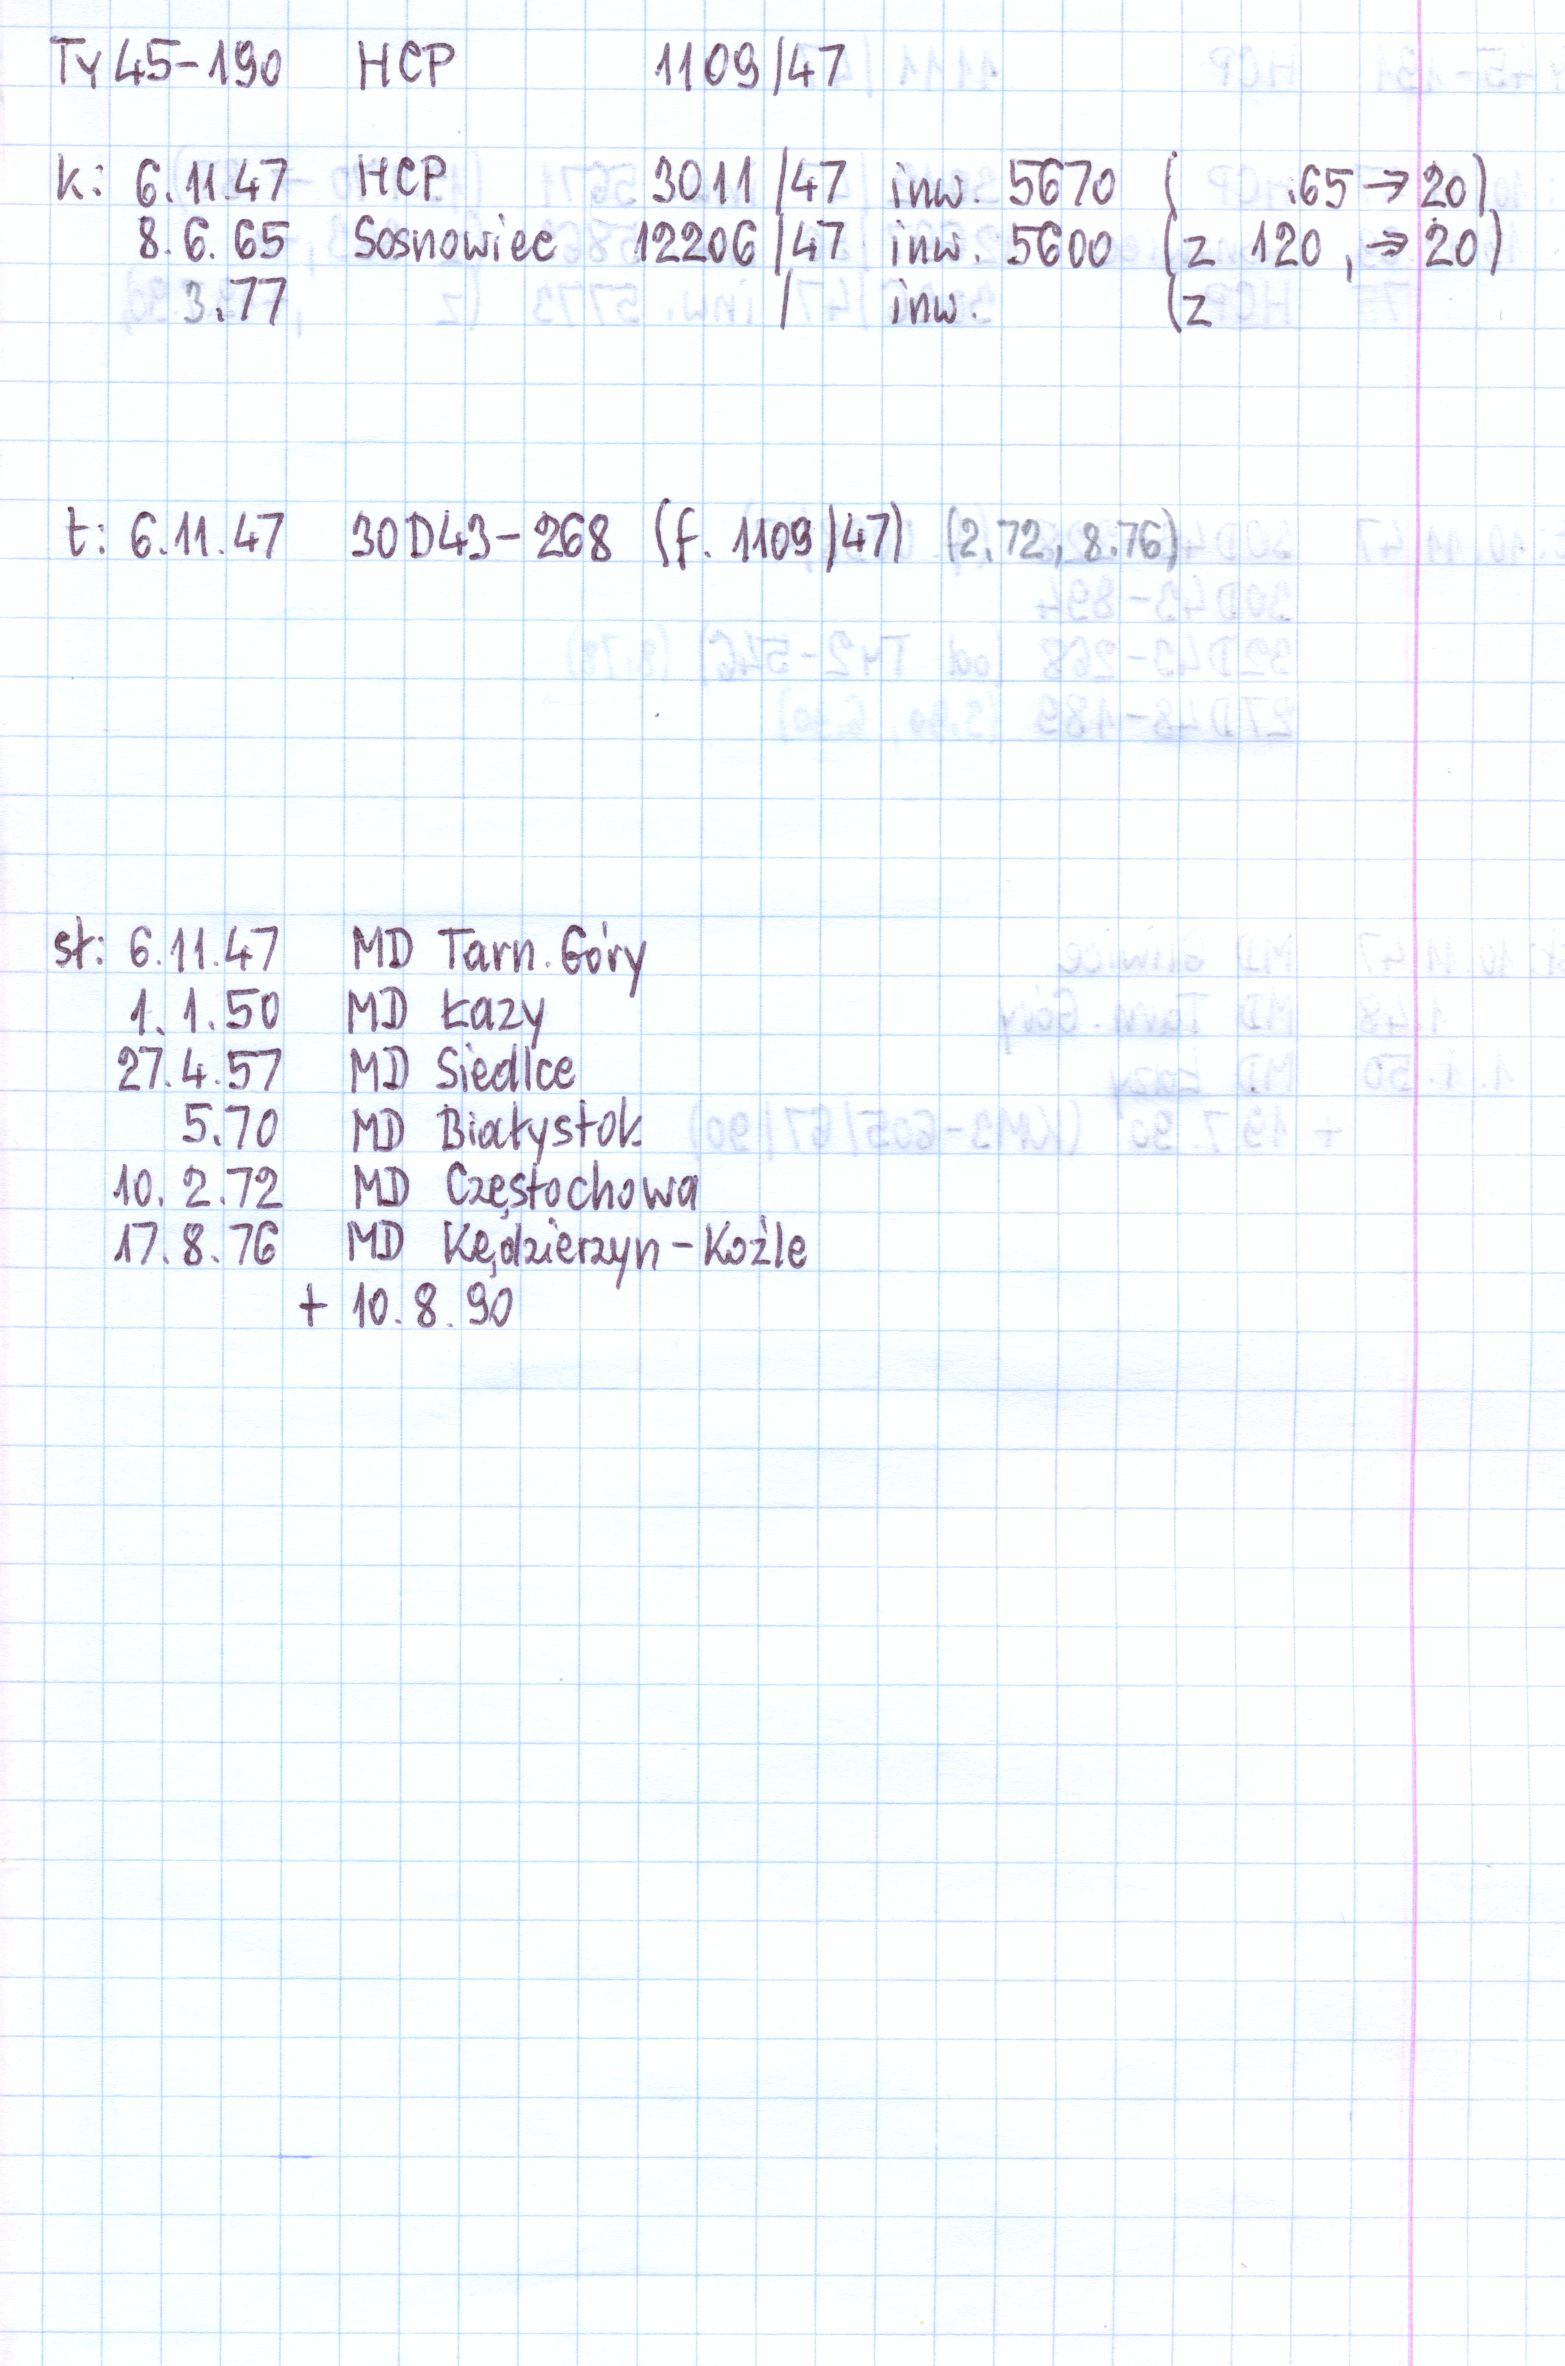 Ty45-190 HCP 1109/47
k: 6.11.47 HCP 3011/47 inw. 5670 ( .65→20)
8.6.65 Sosnowiec 12206/47 inw. 5600 (z 120, →20)
3.77 / inw. (z
t: 6.11.47 30D43-268 (f. 1109/47) (2.72, 8.76)
st: 6.11.47 MD Tarn. Góry
1.1.50 MD Łazy
27.4.57 MD Siedlce
5.70 MD Białystok
10.2.72 MD Częstochowa
17.8.76 MD Kędzierzyn-Koźle
+ 10.8.90